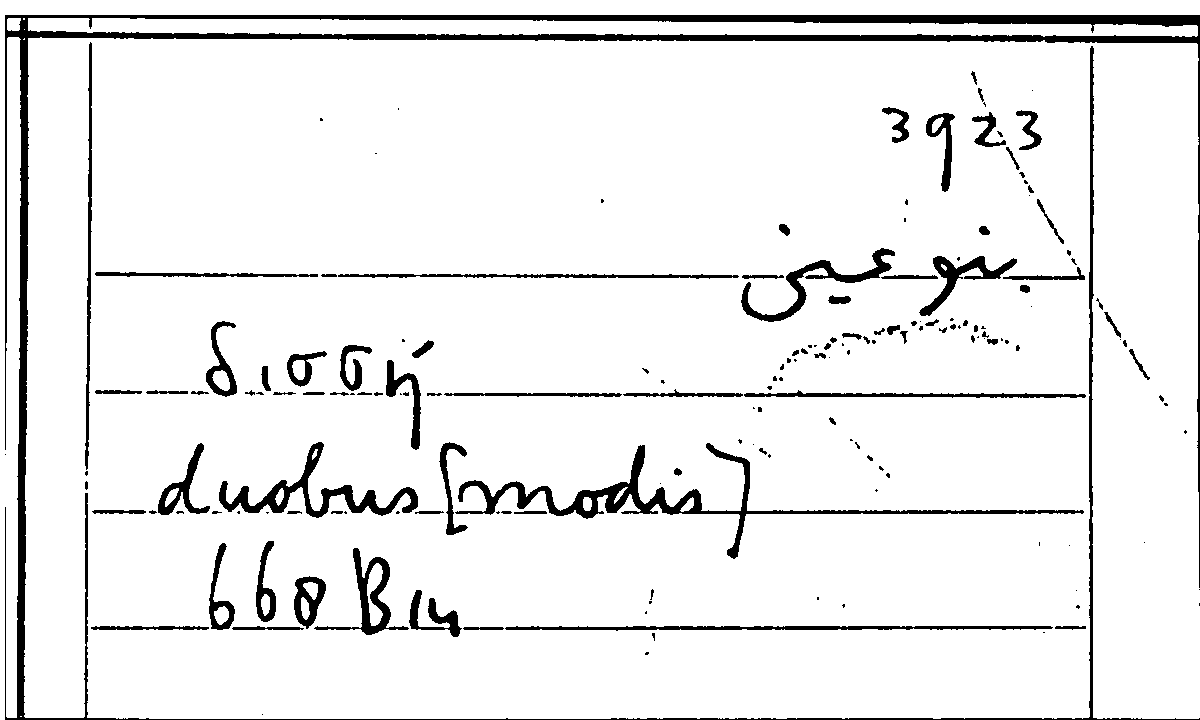 3923
بنوعين
δισσή
duobus [modis]
668 B 14